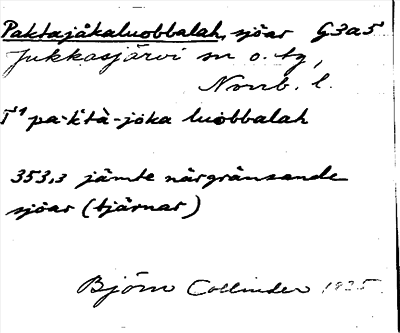 Paktajåkaluobbalah, sjöar G3a5
Jukkasjärvi sn o. tg,
Norrb. l.
pa·k'tà-jòka luòbbalah
353,3 jämte närgränsande
sjöar (tjärnar)
Björn Collinder 1925